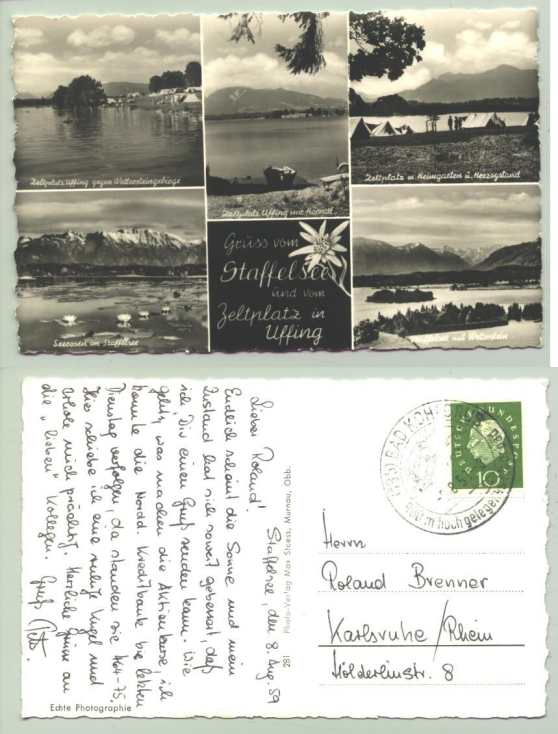 Zeltplatz Uffing gegen Wettersteingebirge
Zeltplatz Uffing mit Hörnle
Zeltplatz m. Heimgarten u. Herzogstand
Gruss vom
Staffelsee
und vom
Zeltplatz in
Uffing
Seerosen am Staffelsee
Staffelsee mit Wetterstein
Staffelsee, den 8. Aug. 59
Lieber Roland!
Endlich scheint die Sonne und mein
Zustand hat sich soweit gebessert, daß
ich Dir einen Gruß senden kann. Wie
geht's, was machen die Aktienkurse, ich
konnte die Nordd. Kreditbank bis letzten
Dienstag verfolgen, da standen sie 464-75.
Hier schiebe ich eine ruhige Kugel und
erhole mich prächtig. Herzliche Grüße an
die "lieben" Kollegen. Gruß
Echte Photographie
281 Photo-Verlag Max Stoess, Murnau, Obb.
BAD KOHL
hochgelegen
DEUTSCHE BUNDESPOST
10
Herrn
Roland Brenner
Karlsruhe/Rhein
Hölderlinstr. 8